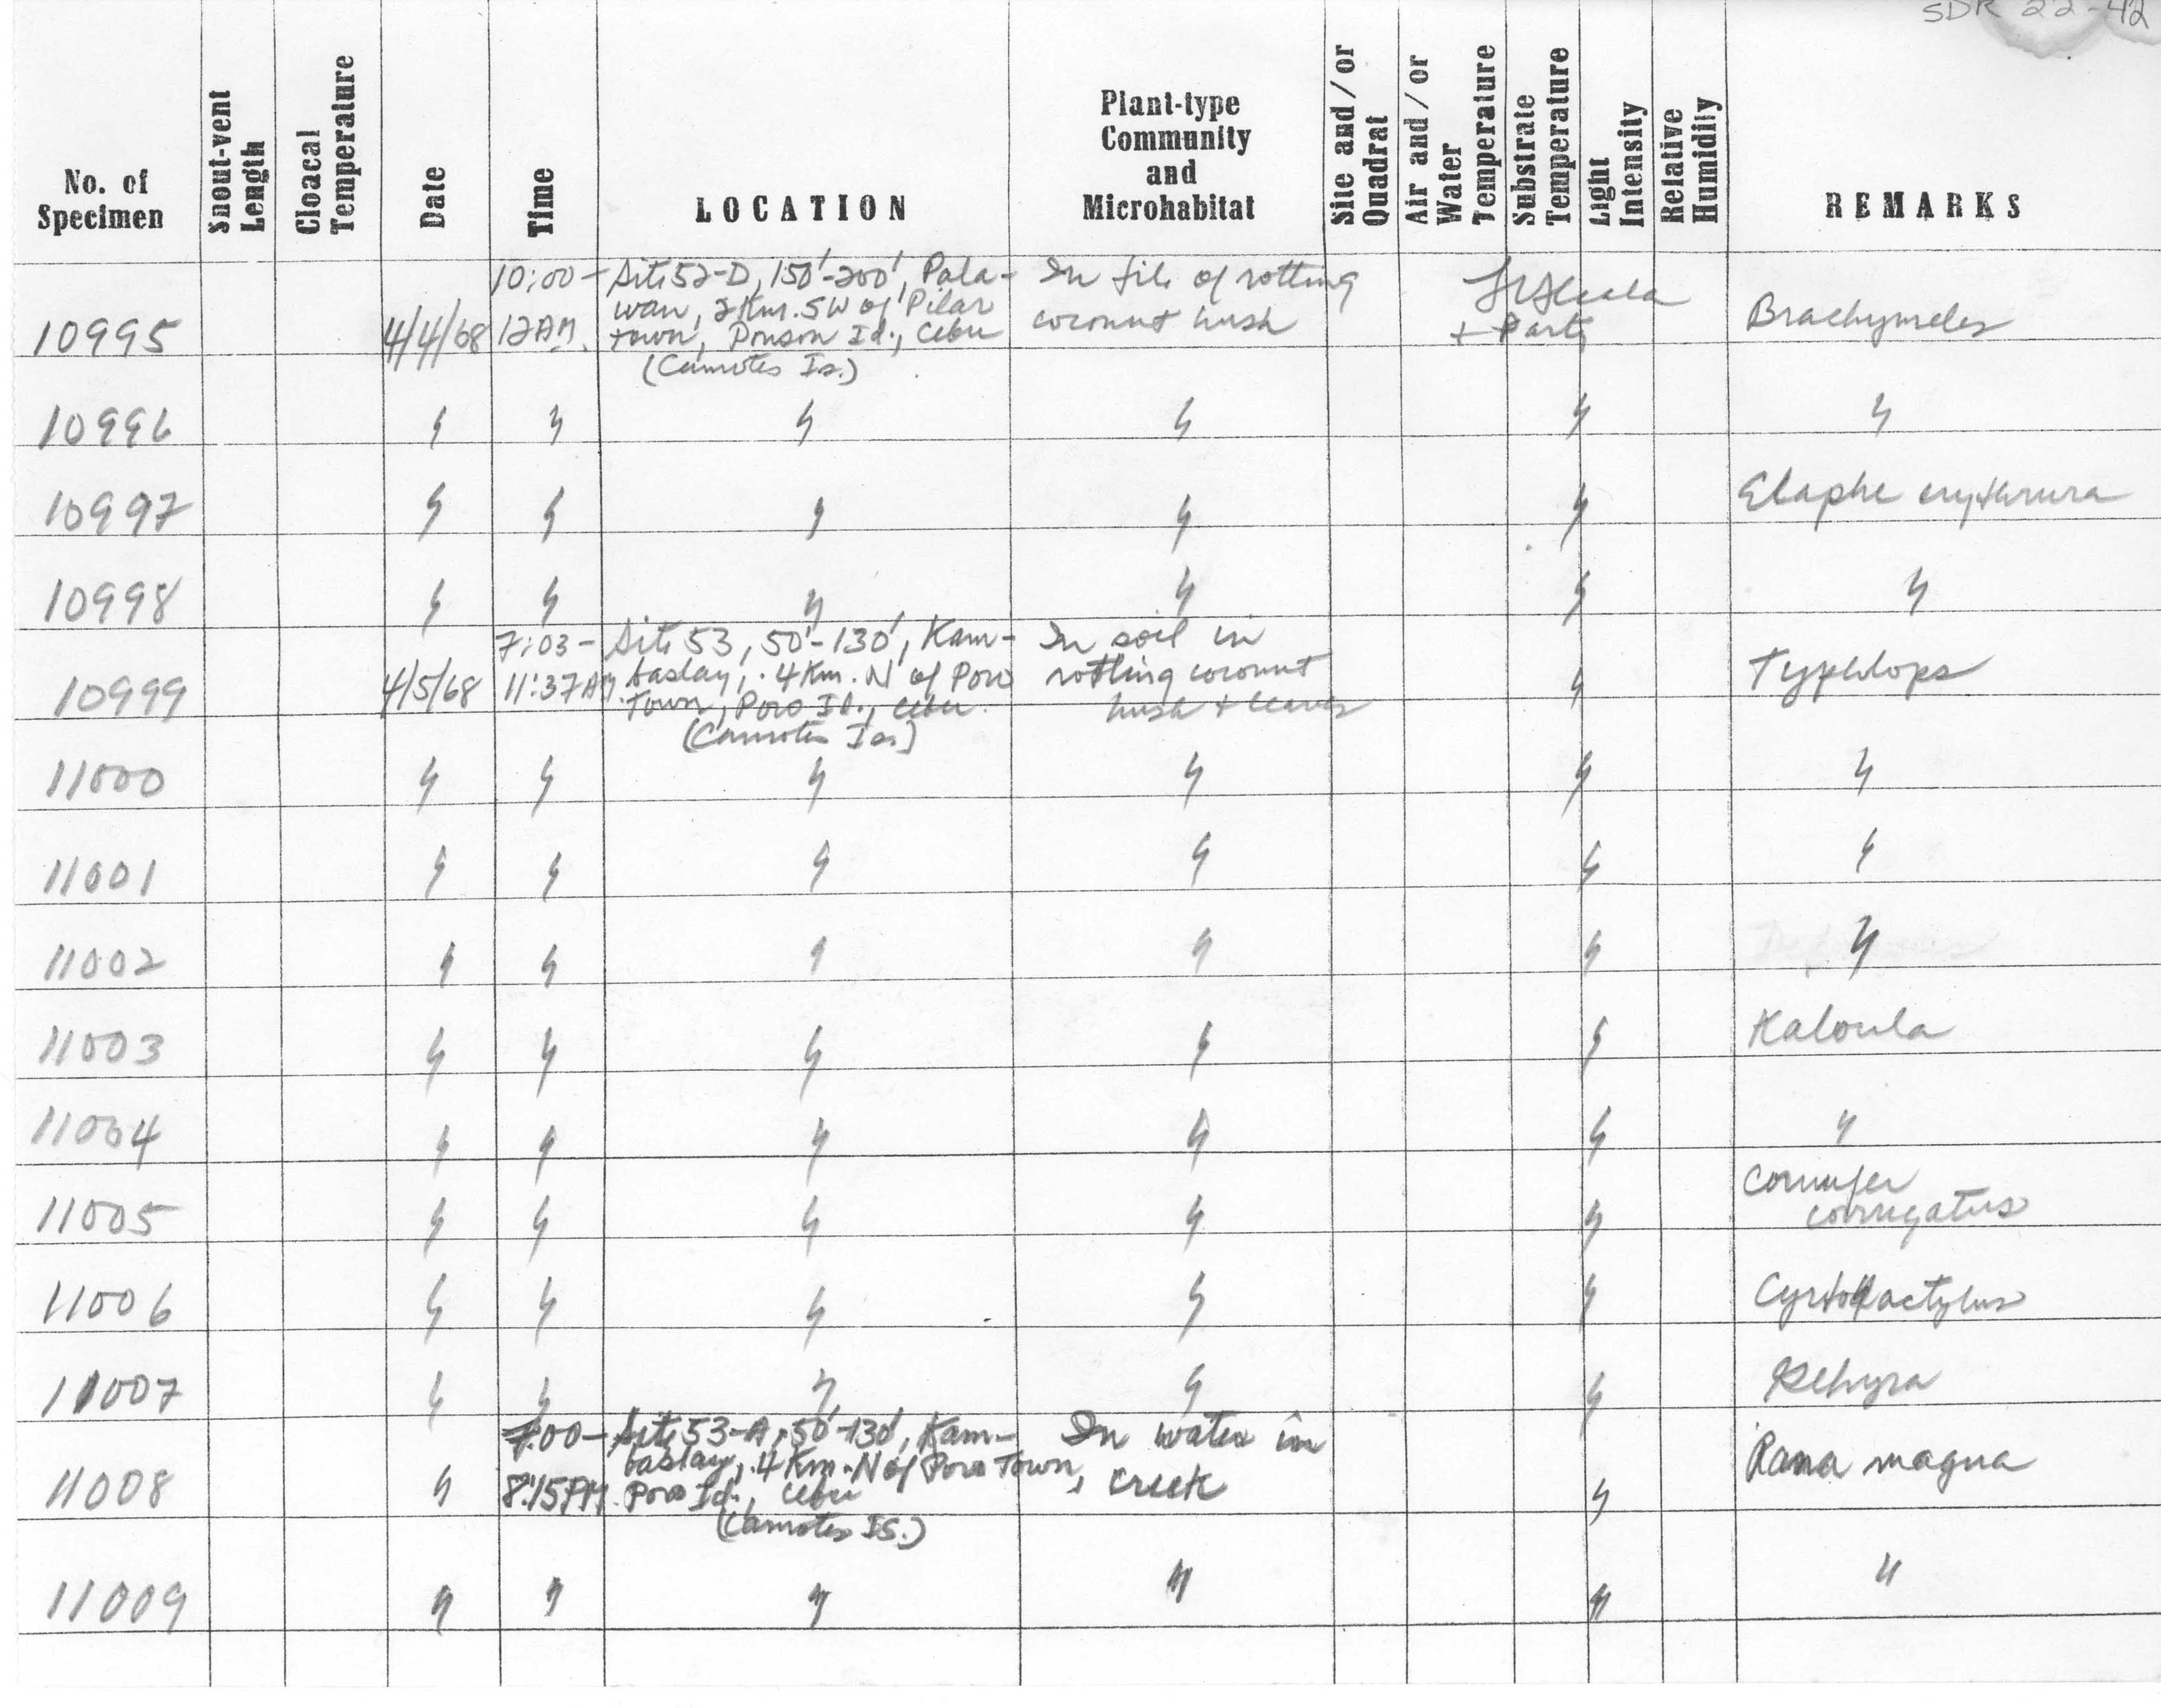 SDR 22-42
No. of Specimen
Snout-vent Length
Cloacal Temperature
Date
Time
LOCATION
Plant-type Community and Microhabitat
Site and/or Quadrat
Air and/or Water Temperature
Substrate Temperature
Light Intensity
Relative Humidity
REMARKS
10:00- Site 52-D, 150'-200', Pala- In pile of rotting
10995 4/4/68 12AM. wan, 2Km. SW of Pilar coconut husk Brachymeles
town, Ponson Id., Cebu + Party
(Camotes Is.)
10996 " " " " " "
10997 " " " " " Elaphe erythrura
10998 " " " " " "
7:03- Site 53, 50'-130', Kam- In soil in
10999 4/5/68 11:37AM. baslay, .4Km. N of Poro rotting coconut " Typhlops
Town, Poro Id., Cebu. husk + leaves
(Camotes Is.)
11000 " " " " " "
11001 " " " " " "
11002 " " " " " "
11003 " " " " " Kaloula
11004 " " " " " "
11005 " " " " " Cornufer corrugatus
11006 " " " " " Cyrtodactylus
11007 " " " " " Gehyra
7:00- Site 53-A, 50'-130', Kam- In water in
baslay, .4Km. N of Poro Town, creek
11008 " 8:15PM. Poro Id., Cebu " Rana magna
(Camotes IS.)
11009 " " " " " "